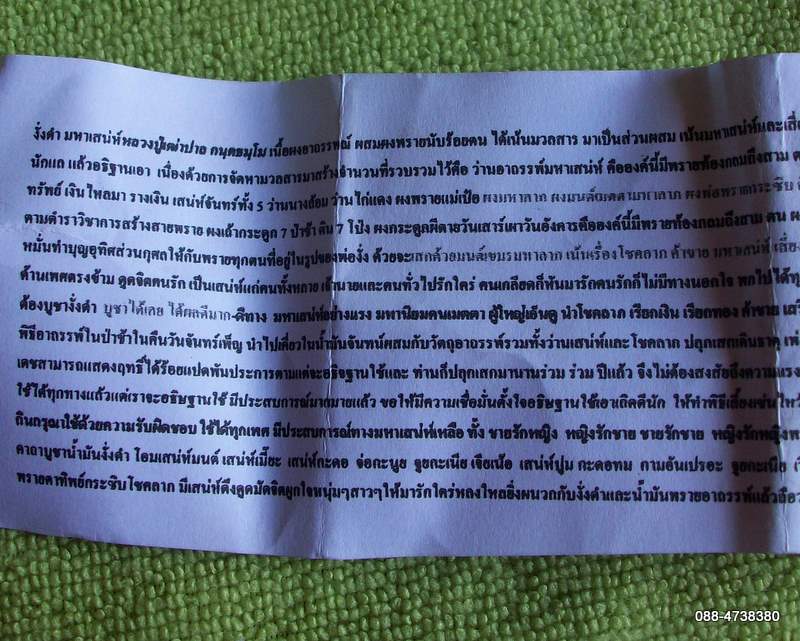 งั่งดำ มหาเสน่ห์หลวงปู่เฒ่าปาล คนฺตธมฺโม เนื้อผงอาถรรพณ์ ผสมผงพรายนับร้อยตน ได้เน้นมวลสาร มาเป็นส่วนผสม เน้นมหาเสน่ห์และ
นักแล แล้วอธิฐานเอา เนื่องด้วยการจัดหามวลสารมาสร้างจำนวนที่รวบรวมไว้คือ ว่านอาถรรพ์มหาเสน่ห์ คือองค์นี้มีพรายท้องกลมถึงสาม
ทรัพย์ เงินไหลมา รางเงิน เสน่ห์จันทร์ทั้ง 5 ว่านนางล้อม ว่านไก่แดง ผงพรายแม่เป๋อ ผงมหาลาภ
ตามตำราวิชาการสร้างสายพราย ผงเถ้ากระดูก 7 ป่าช้า ดิน 7 โป่ง ผงกระดูกผีตายวันเสาร์เผาวันอังคารคือองค์นี้มีพรายท้องกลมถึงสาม ตน
หมั่นทำบุญอุทิศส่วนกุศลให้กับพรายทุกตนที่อยู่ในรูปของพ่องั่ง ด้วยจะเสกด้วยมนต์เขมรมหาลาภ เน้นเรื่องโชคลาภ ค้าขาย มหาเสน่ห์
ด้านเพศตรงข้าม ดูดจิตคนรัก เป็นเสน่ห์แก่คนทั้งหลาย เจ้านายและคนทั่วไปรักใคร่ คนเกลียดก็หันมารักคนรักก็ไม่มีทางนอกใจ พกไปได้
ต้องบูชางั่งดำ บูชาได้เลย ได้ผลดีมาก-ดีทาง มหาเสน่ห์อย่างแรง มหานิยมคนเมตตา ผู้ใหญ่เอ็นดู นำโชคลาภ เรียกเงิน เรียกทอง ค้าขาย
พิธีอาถรรพ์ในป่าช้าในคืนวันจันทร์เพ็ญ นำไปเคี่ยวในน้ำมันจันทน์ผสมกับวัตถุอาถรรพ์รวมทั้งว่านเสน่ห์และโชคลาภ ปลุกเสกเดินธาตุ
เดชสามารถแสดงฤทธิ์ได้ร้อยแปดพันประการตามแต่จะอธิฐานใช้และ ท่านก็ปลุกเสกมานานร่วม ร่วม ปีแล้ว จึงไม่ต้องสงสัยถึงความแรง
ใช้ได้ทุกทางแล้วแต่เราจะอธิษฐานใช้ มีประสบการณ์มากมายแล้ว ขอให้มีความเชื่อมั่นตั้งใจอธิษฐานใช้เอาเถิดดีนัก ให้ทำพิธีเลี้ยงเซ่นไหว้
ถินกรุณาใช้ด้วยความรับผิดชอบ ใช้ได้ทุกเพศ มีประสบการณ์ทางมหาเสน่ห์เหลือ ทั้ง ชายรักหญิง หญิงรักชาย ชายรักชาย หญิงรักหญิง
คาถาบูชาน้ำมันงั่งดำ โอมเสน่ห์มนต์ เสน่ห์เมี๊ยะ เสน่ห์กะดอ จ่อกะนูย รูยกะเนีย เจ๊ยเน้อ เสน่ห์ปูม กะดอทม กามอันเปรอะ รูยกะเนีย
พรายตาทิพย์กระซิบโชคลาภ มีเสน่ห์ดึงดูดมัดจิตผูกใจหนุ่มๆสาวๆให้มารักใคร่หลงใหลยิ่งผนวกกับงั่งดำและน้ำมันพรายอาถรรพ์แล้ว
088-4738380